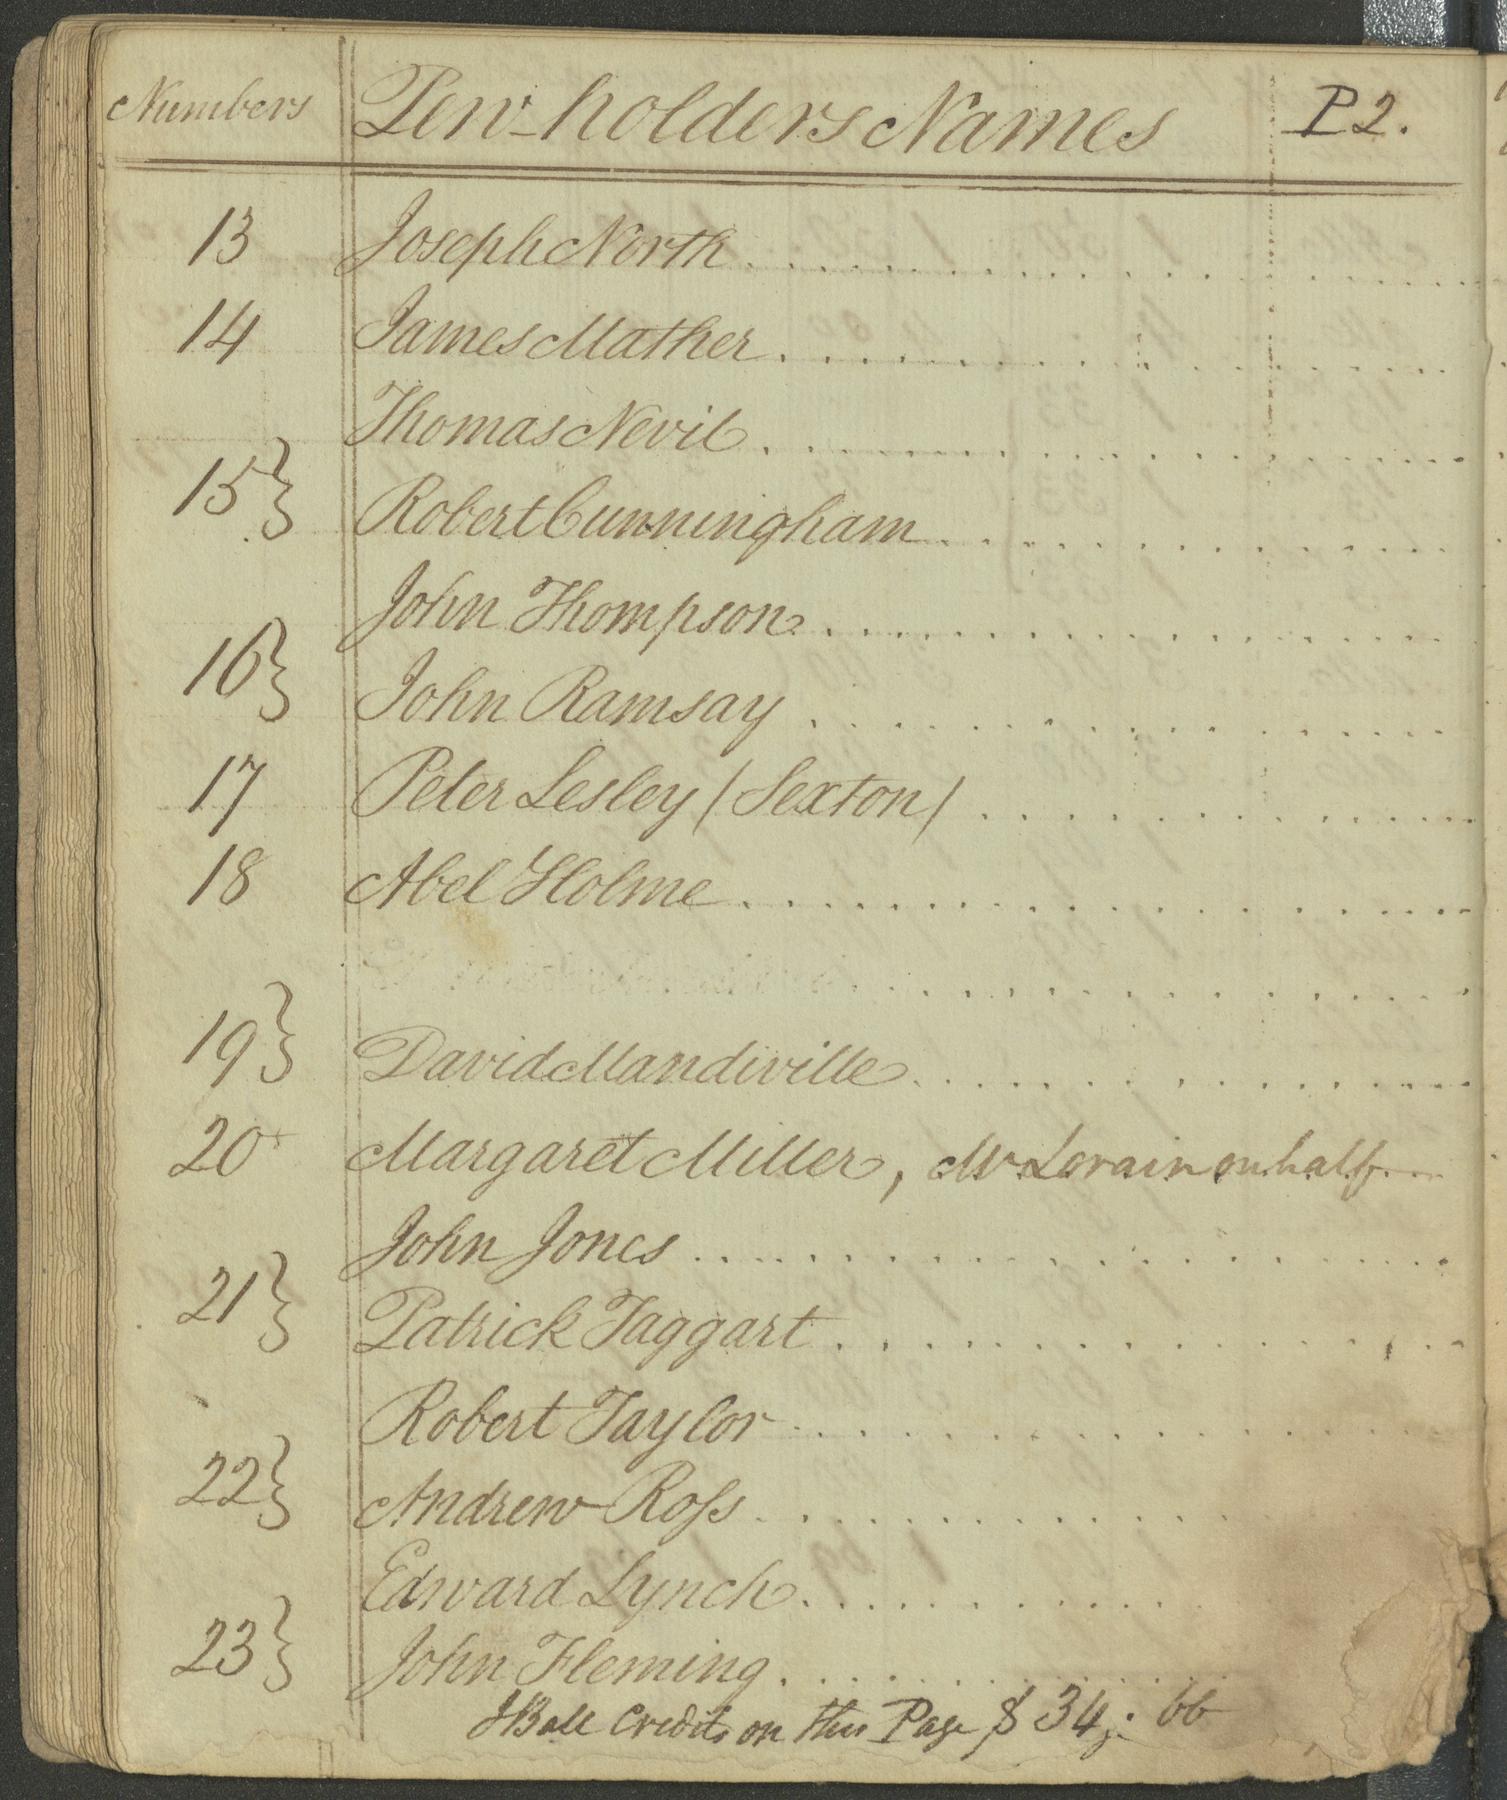 Numbers Pew-holders Names P 2.
13 Joseph North
14 James Mather
Thomas Nevil
15 } Robert Cunningham
John Thompson
16 } John Ramsay
17 Peter Lesley (Sexton)
18 Abel Holme
19 } David Mandiville
20 Margaret Miller, Mr Lorain on half
John Jones
21 } Patrick Taggart
Robert Taylor
22 } Andrew Ross
Edward Lynch
23 } John Fleming
Credits on this Page $ 34 : 66